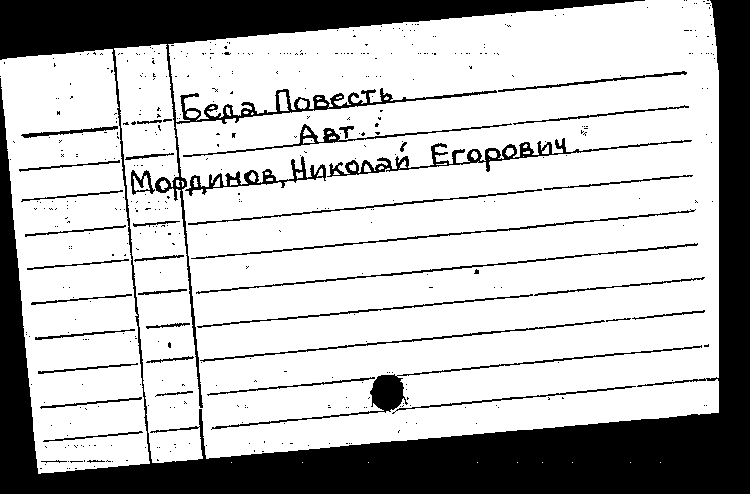 Беда. Повесть.
Авт.:
Мординов, Николай Егорович.